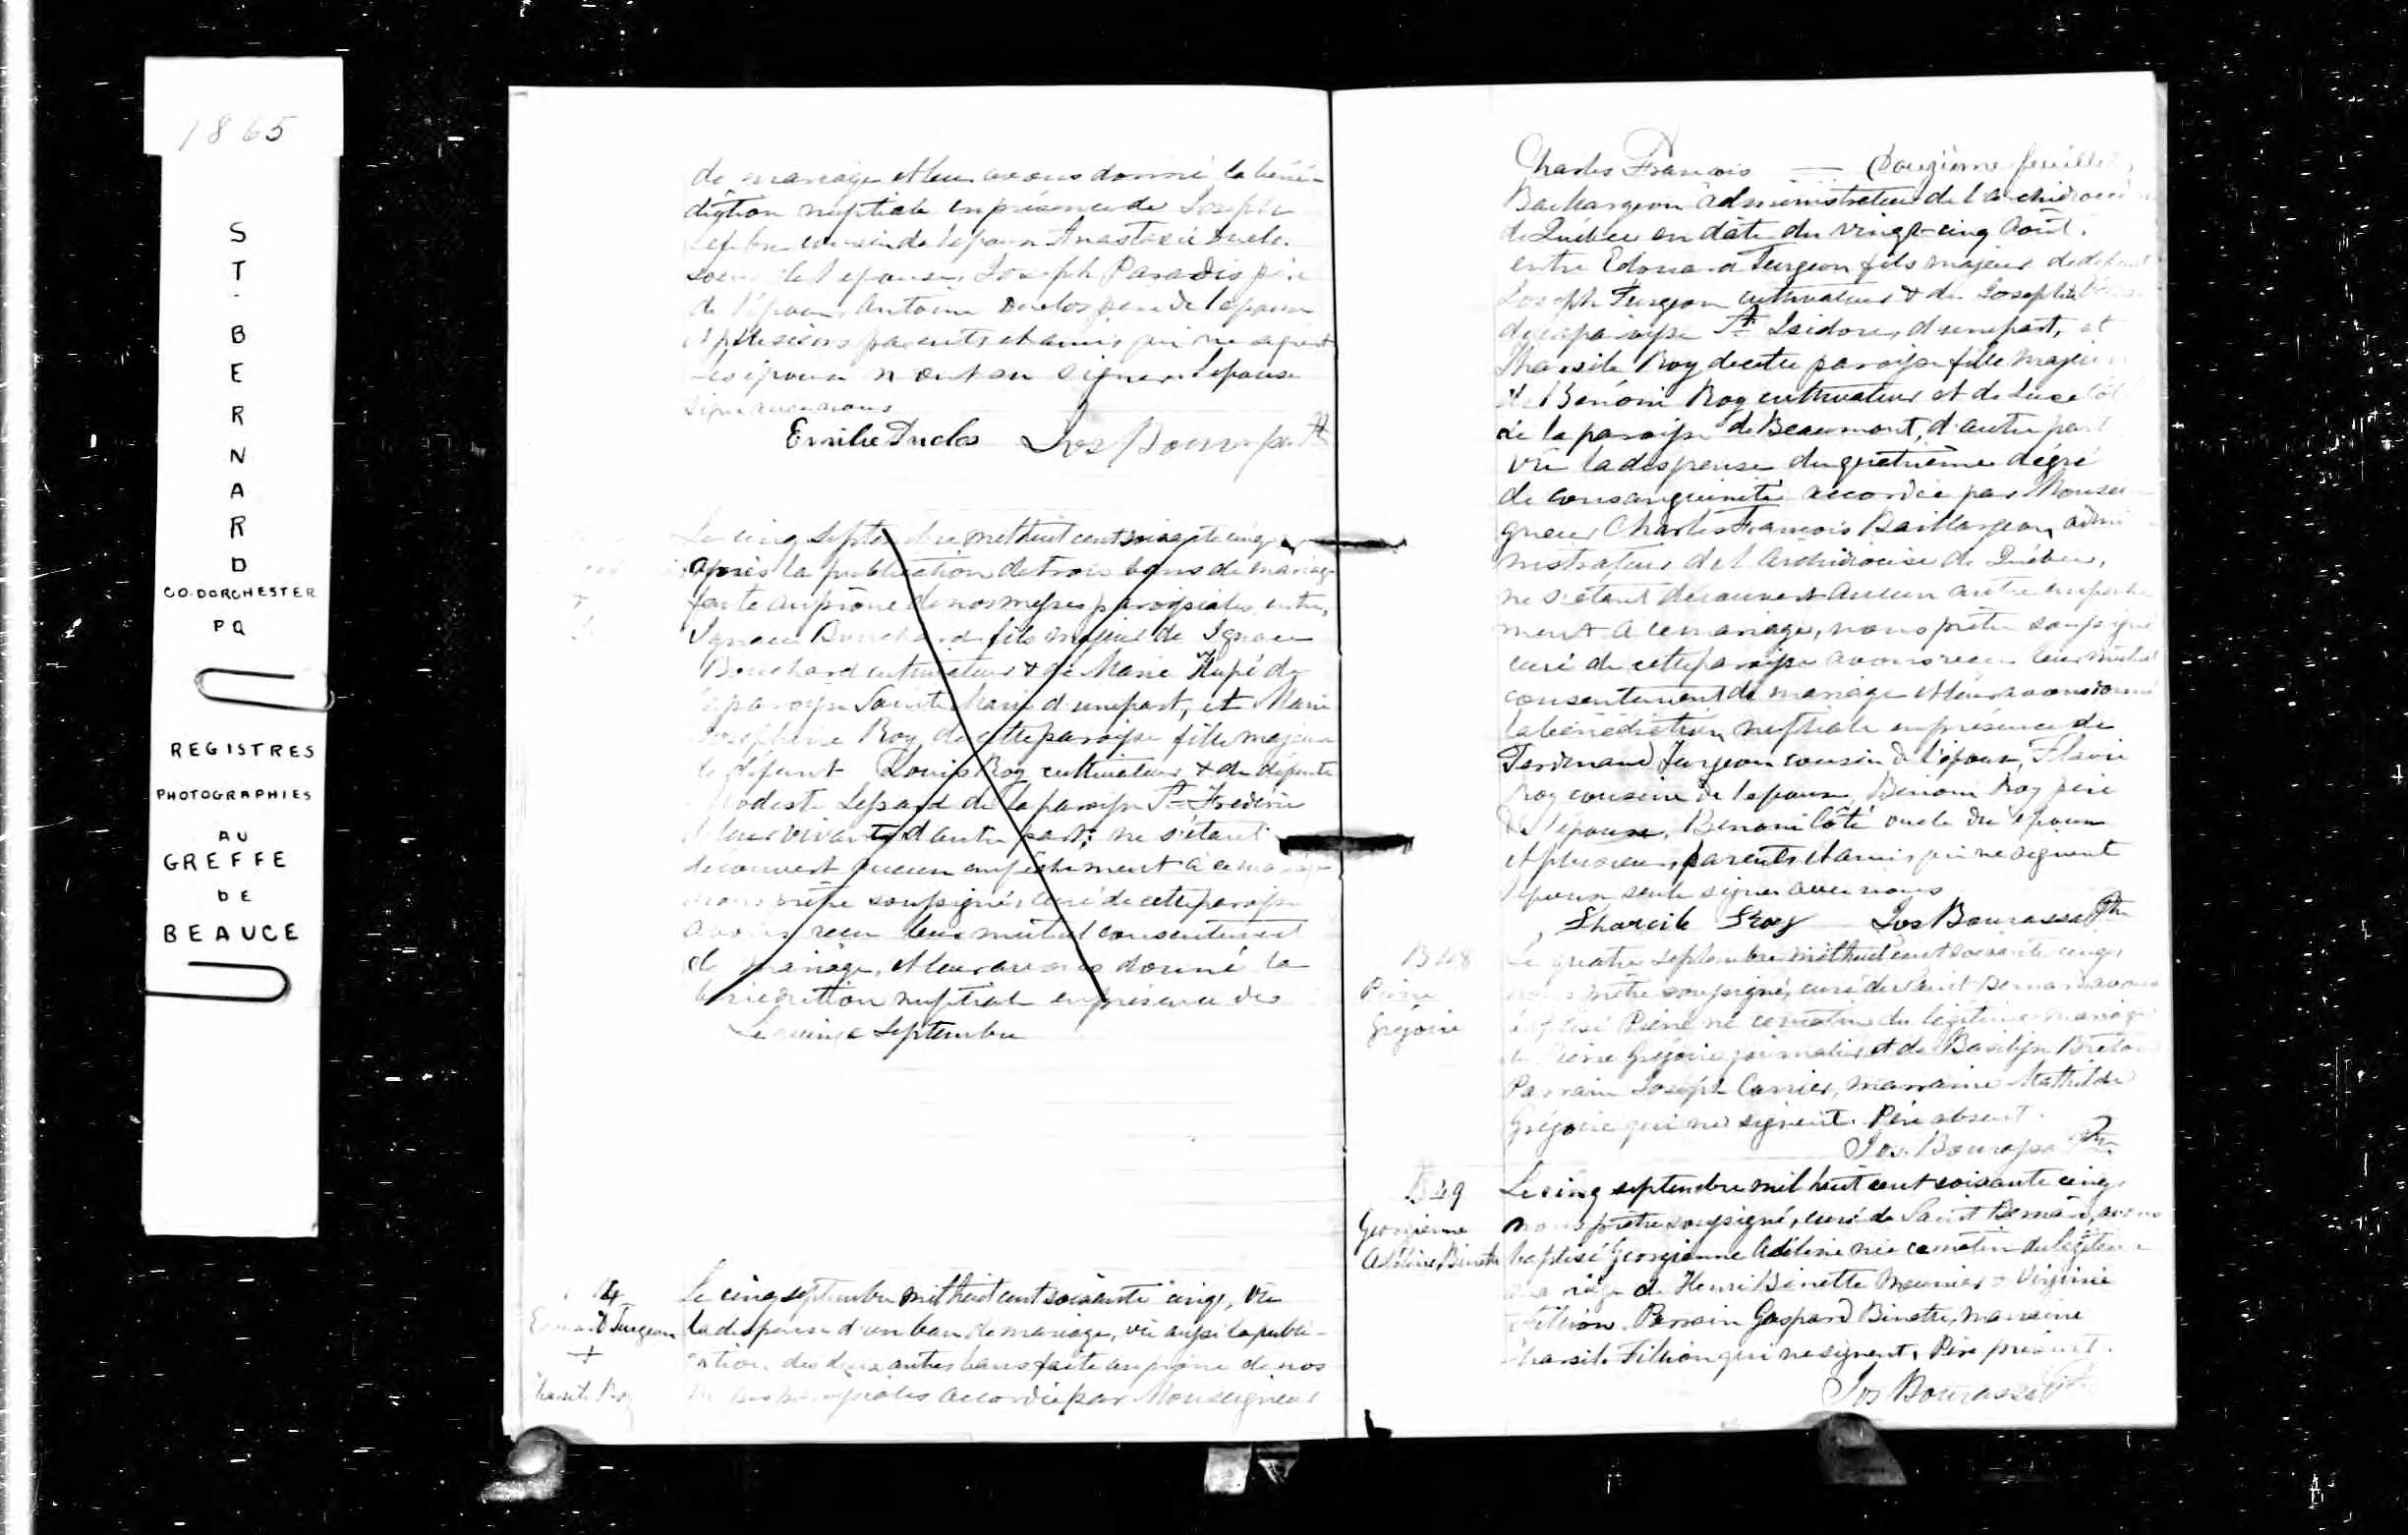 1865
ST. BERNARD
CO. DORCHESTER
PQ
REGISTRES
PHOTOGRAPHIES
AU
GREFFE
DE
BEAUCE
de mariage et leur avons donné la béné-
diction nuptiale en présence de Joseph
cousin de l'epoux Anastasie Duclos
soeur de l'epouse, Joseph Paradis père
de l'époux, Antoine Duclos père de l'epouse
et plusieurs parents et amis qui ne signent
les époux n'ont su signer l'epouse
signe avec nous
Emilie Duclos Jos Bourassa Ptre
Le cinq Septembre mil huit cent soixante cinq
après la publication de trois bans de mariage
faite au prône de nos messes paroissiales, entre,
Ignace Bouchard fils majeur de Ignace
Bouchard cultivateur & de Marie Hupé de
la paroisse Sainte Marie d'une part, et Marie
Josephine Roy de cette paroisse fille majeure
de défunt Louis Roy cultivateur & de défunte
Modeste Lessard de la paroisse St Frédéric
de leur vivant, d'autre part; ne s'étant
découvert aucun empêchement à ce mariage
nous prêtre soussigné, curé de cette paroisse
avons reçu leur mutuel consentement
de mariage, et leur avons donné la
bénédiction nuptiale en présence des
Le Septembre
4
Edouard Turgeon
+
Tharsile Roy
Le cinq septembre mil huit cent soixante cinq, vu
la dispense d'un ban de mariage, vu aussi la publi-
cation des deux autres bans faite au prône de nos
messes paroissiales accordée par Monseigneur
Charles François — Douzième feuillet
Baillargeon administrateur de l'archidiocèse
de Québec en date du vingt-cinq Août.
entre Edouard Turgeon fils majeur de défunt
Joseph Turgeon cultivateur & de Josephte
de la paroisse St Isidore, d'une part, et
Tharsile Roy de cette paroisse fille majeure
de Bénoni Roy cultivateur et de Luce Côté
de la paroisse de Beaumont, d'autre part
vu la dispense du quatrième dégré
de consanguinité accordée par Monsei-
gneur Charles François Baillargeon, admi-
nistrateur de l'Archidiocèse de Québec,
ne s'étant découvert aucun autre empêche-
ment à ce mariage, nous prêtre soussigné
curé de cette paroisse avons reçu leur mutuel
consentement de mariage et leur avons donné
la bénédiction nuptiale en présence de
Ferdinand Turgeon cousin de l'époux, Flavie
Roy cousine de l'epouse, Bénoni Roy père
de l'épouse, Benoni Côté oncle de l'époux
et plusieurs parents et amis qui ne signent
l'epouse seule signe avec nous
Tharcile Roy Jos Bourassa Ptre
B 48
Pierre
Grégoire
Le quatre septembre mil huit cent soixante cinq,
nous prêtre soussigné, curé de Saint Bernard avons
baptisé Pierre né ce matin du légitime mariage
de Pierre Grégoire journalier et de Basilisse Breton
Parrain Joseph Carrier, marraine Mathilde
Grégoire qui ne signent. Père absent.
Jos. Bourassa Ptre
B 49
Georgienne
Adéline Binette
Le cinq septembre mil huit cent soixante cinq,
nous prêtre soussigné, curé de Saint Bernard, avons
baptisé Georgienne Adéline née ce matin du légitime
mariage de Henri Binette Meunier & Virginie
Fillion. Parrain Gaspard Binette, marraine
Tharsile Fillion qui ne signent, Père présent.
Jos Bourassa Ptre